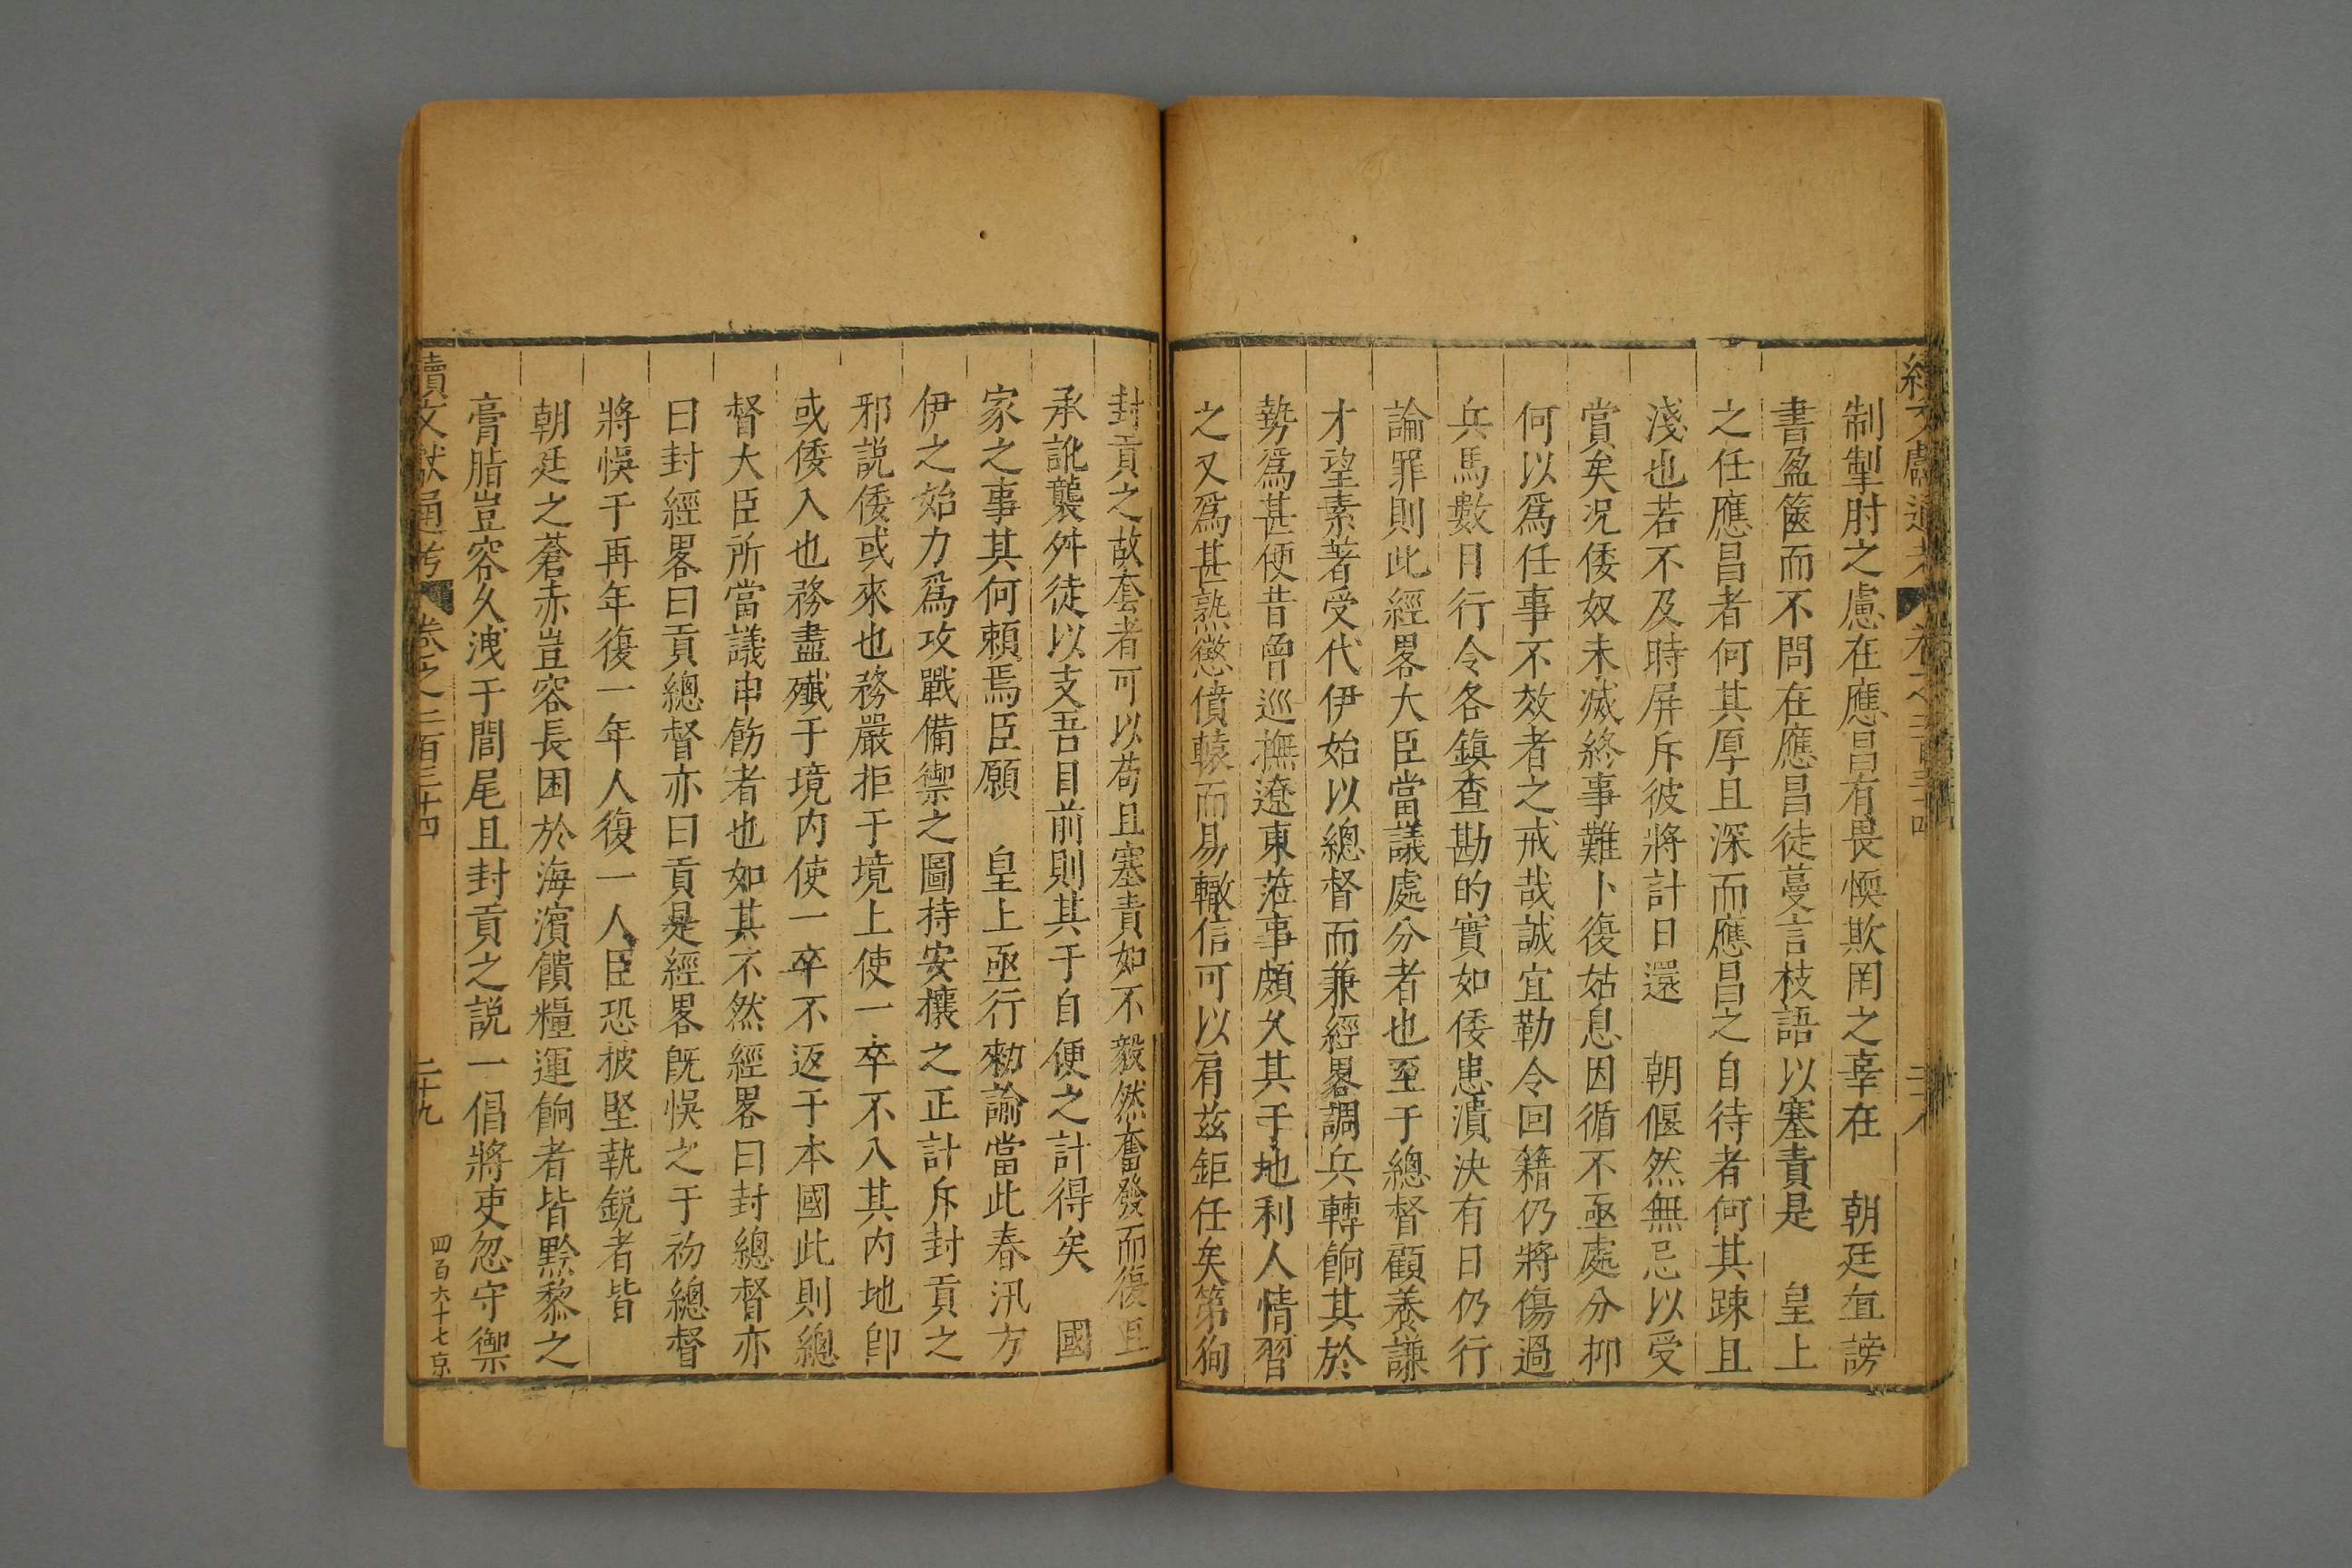 續文獻通考 卷之二百三十四
制掣肘之慮在應昌有畏愞欺罔之辜在 朝廷有謗
書盈篋而不問在應昌徒蔓言枝語以塞責是 皇上
之任應昌者何其厚且深而應昌之自待者何其踈且
淺也若不及時屏斥彼將計日還 朝偃然無忌以受
賞矣况倭奴未滅終事難卜復姑息因循不亟處分抑
何以爲任事不效者之戒哉誠宜勒令回籍仍將傷過
兵馬數目行令各鎮查勘的實如倭患潰決有日仍行
論罪則此經畧大臣當議處分者也至于總督顧養謙
才望素著受代伊始以總督而兼經畧調兵轉餉其於
勢爲甚便昔曾巡撫遼東蒞事頗久其于地利人情習
之又爲甚熟懲僨轅而易轍信可以肩茲鉅任矣第徇
封貢之故套者可以苟且塞責如不毅然奮發而復且
承訛襲舛徒以支吾目前則其于自便之計得矣 國
家之事其何頼焉臣願 皇上亟行勑諭當此春汛方
伊之始力爲攻戰備禦之圖持安攘之正計斥封貢之
邪説倭或來也務嚴拒于境上使一卒不入其内地卽
或倭入也務盡殲于境内使一卒不返于本國此則總
督大臣所當議申飭者也如其不然經畧曰封總督亦
曰封經畧曰貢總督亦曰貢是經畧旣悞之于初總督
將悞于再年復一年人復一人臣恐披堅執鋭者皆
朝廷之蒼赤豈容長困於海濱饋糧運餉者皆黔黎之
膏脂豈容久洩于閭尾且封貢之説一倡將吏忽守禦
續文獻通考 卷之二百三十四 二十九 四百六十七京